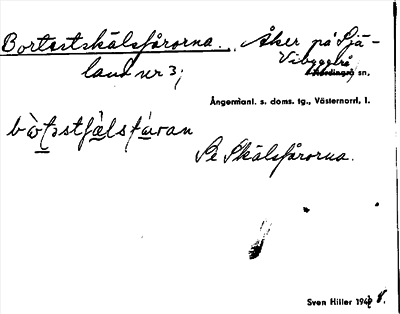 Bortastskälsfårorna. Åker på Själand nr 3;
Vibyggerå
sn,
Ångermanl. s. doms. tg., Västernorrl. l.
Se Skälsfårorna.
Sven Hiller 1948.